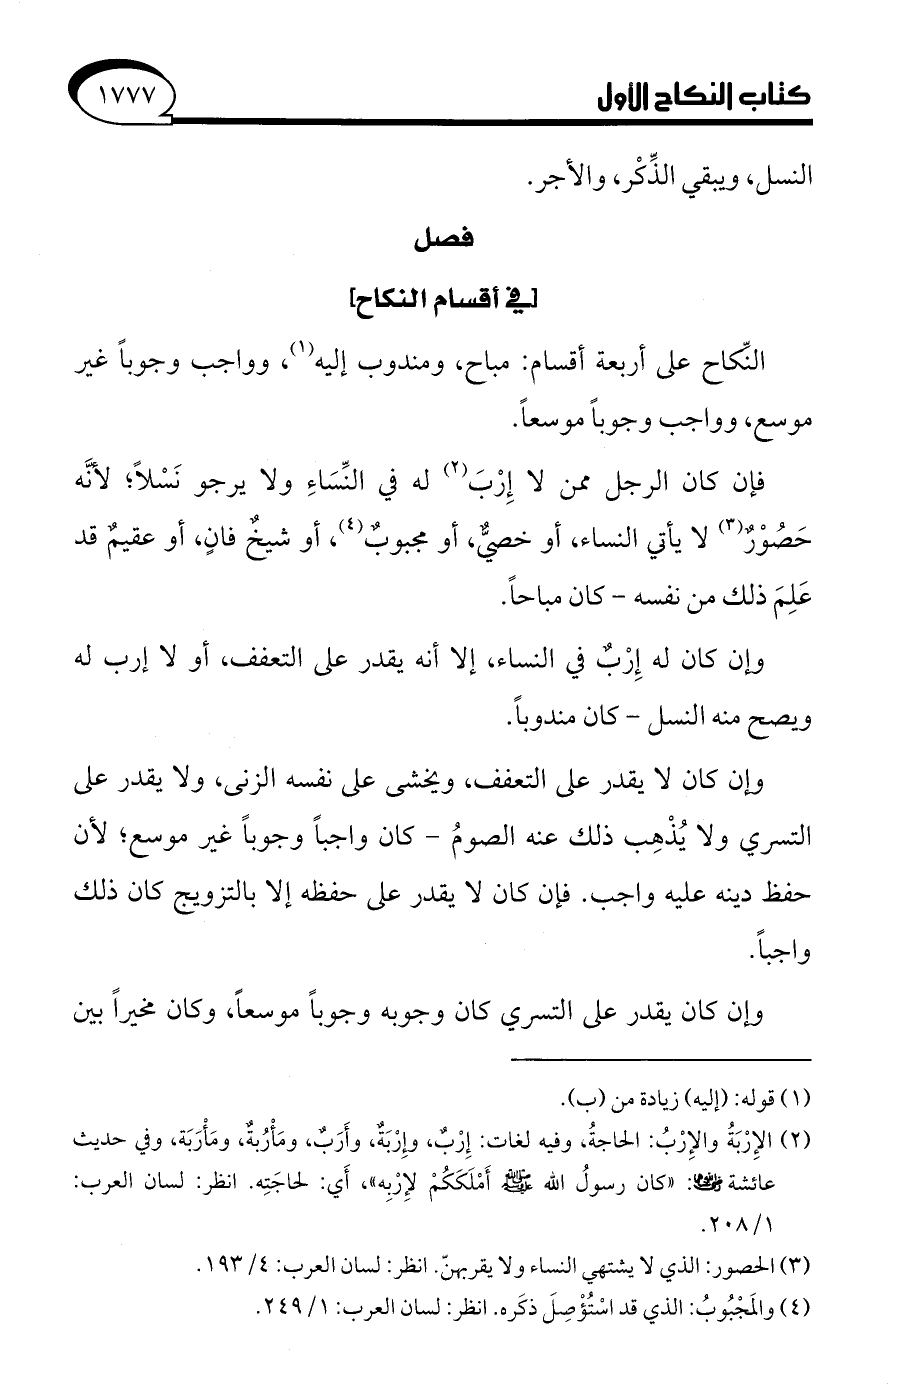 كتاب النكاح الأول
١٧٧٧
النسل، ويبقي الذِّكْر، والأجر.
فصل
[في أقسام النكاح]
النِّكاح على أربعة أقسام: مباح، ومندوب إليه(١)، وواجب وجوباً غير
موسع، وواجب وجوباً موسعاً.
فإن كان الرجل ممن لا إِرْبَ(٢) له في النِّسَاءِ ولا يرجو نَسْلاً؛ لأنَّه
حَصُوْرٌ(٣) لا يأتي النساء، أو خصيٌّ، أو مجبوبٌ(٤)، أو شيخٌ فانٍ، أو عقيمٌ قد
عَلِمَ ذلك من نفسه - كان مباحاً.
وإن كان له إِرْبٌ في النساء، إلا أنه يقدر على التعفف، أو لا إرب له
ويصح منه النسل - كان مندوباً.
وإن كان لا يقدر على التعفف، ويخشى على نفسه الزنى، ولا يقدر على
التسري ولا يُذْهِب ذلك عنه الصومُ - كان واجباً وجوباً غير موسع؛ لأن
حفظ دينه عليه واجب. فإن كان لا يقدر على حفظه إلا بالتزويج كان ذلك
واجباً.
وإن كان يقدر على التسري كان وجوبه وجوباً موسعاً، وكان مخيراً بين
(١) قوله: (إليه) زيادة من (ب).
(٢) الإِرْبَةُ والإِرْبُ: الحاجةُ، وفيه لغات: إِرْبٌ، وإِرْبَةٌ، وأَرَبٌ، ومَأْرُبةٌ، ومَأْرَبَة، وفي حديث
عائشة رضي الله عنها: «كان رسولُ الله ﷺ أَمْلَكَكُمْ لإِرْبِه»، أَي: لحاجَتِه. انظر: لسان العرب:
١/ ٢٠٨.
(٣) الحصور: الذي لا يشتهي النساء ولا يقربهنّ. انظر: لسان العرب: ٤/ ١٩٣.
(٤) والمَجْبُوبُ: الذي قد اسْتُؤْصِلَ ذكَره. انظر: لسان العرب: ١/ ٢٤٩.